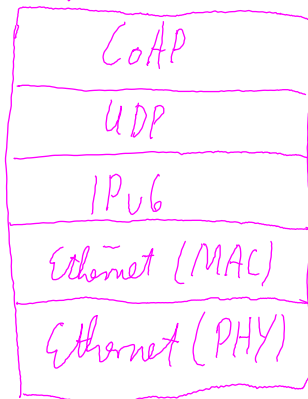 CoAP
UDP
IPv6
Ethernet (MAC)
Ethernet (PHY)